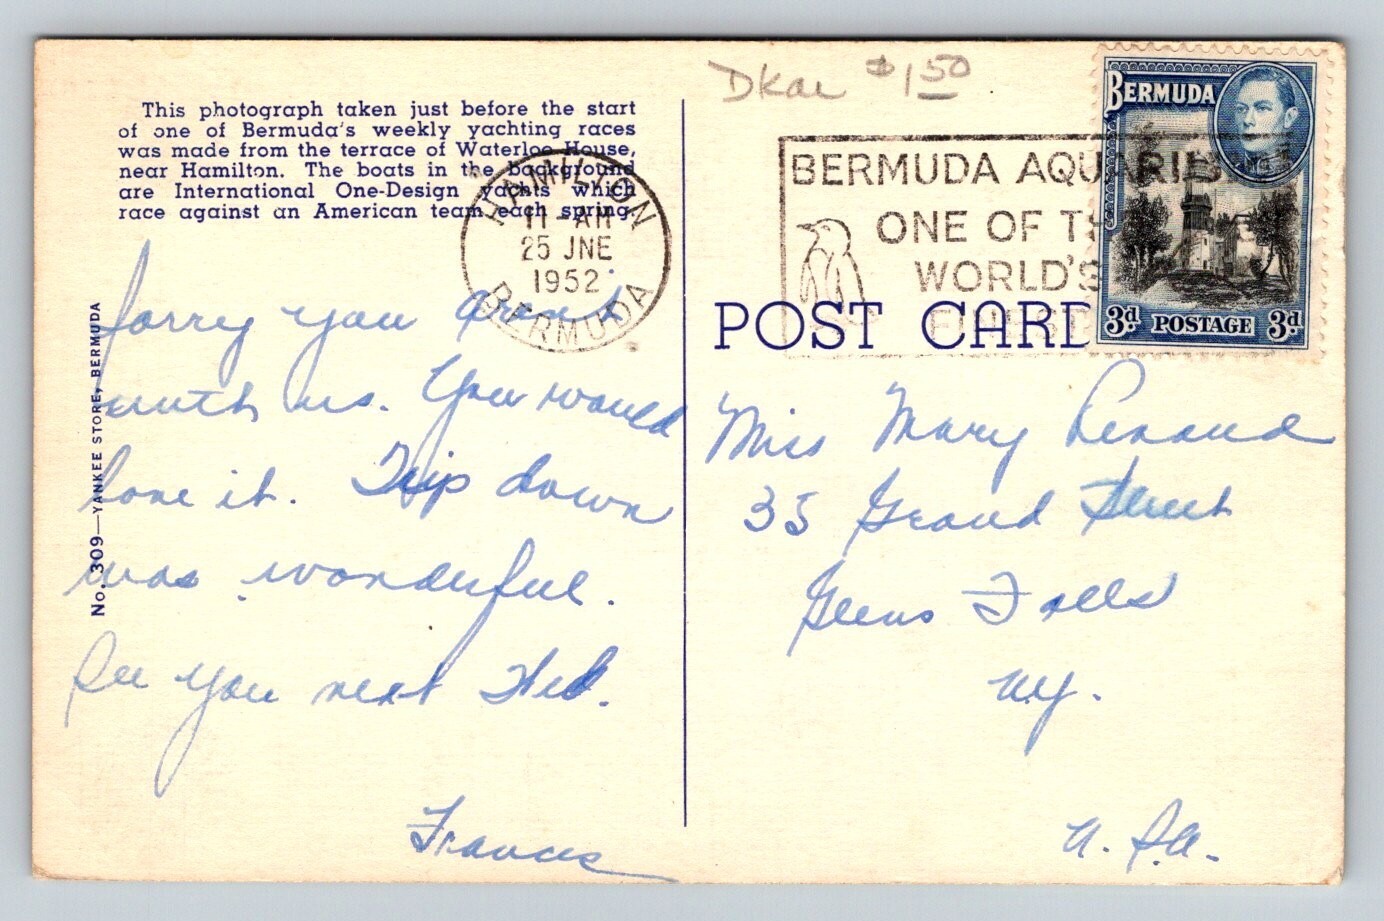 This photograph taken just before the start
of one of Bermuda's weekly yachting races
was made from the terrace of Waterloo House,
near Hamilton. The boats in the background
are International One-Design yachts which
race against an American team each spring.
HAMILTON
11 - AM
25 JNE
1952
BERMUDA
No. 309—YANKEE STORE, BERMUDA
Sorry you aren't
with us. You would
love it. Trip down
was wonderful.
See you next Wed.
Frances
$1.50
BERMUDA AQUARIUM
ONE OF TH
WORLD'S
FINEST
BERMUDA
3d POSTAGE 3d
POST CARD
Miss Mary Renaud
35 Grand Street
Glens Falls
N.Y.
U.S.A.